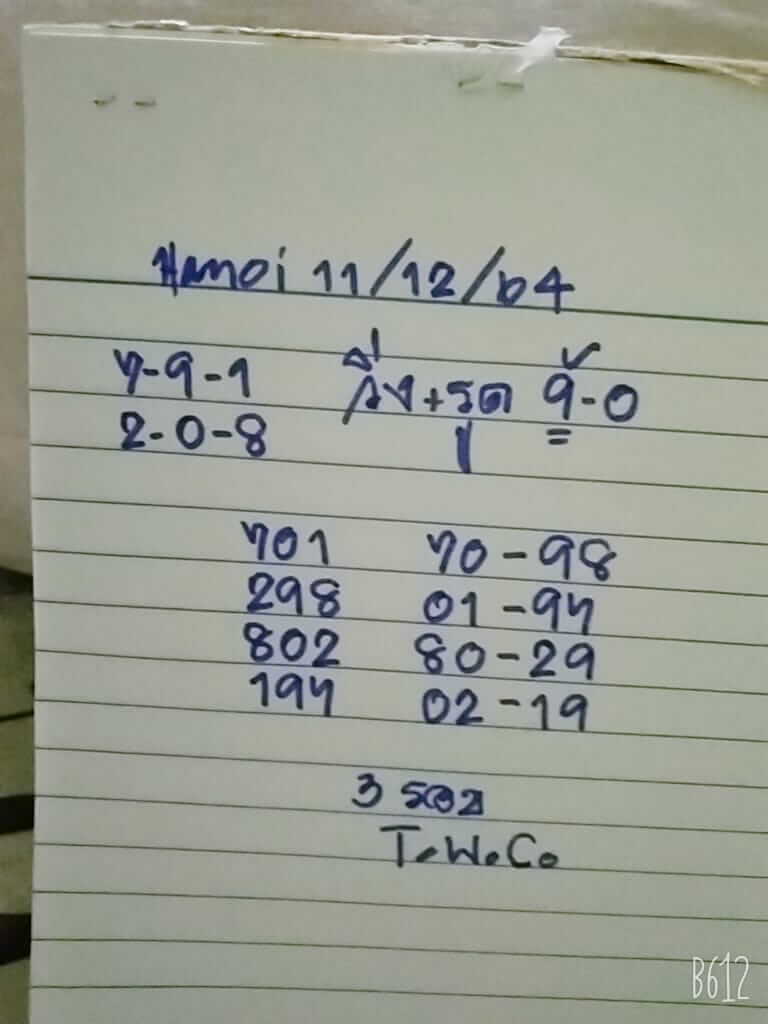 Hanoi 11/12/64
7-9-1 วิ่ง+รูด 9-0
2-0-8
701 70-98
298 01-97
802 80-29
197 02-19
3 รอบ
T.W.Co.
B612